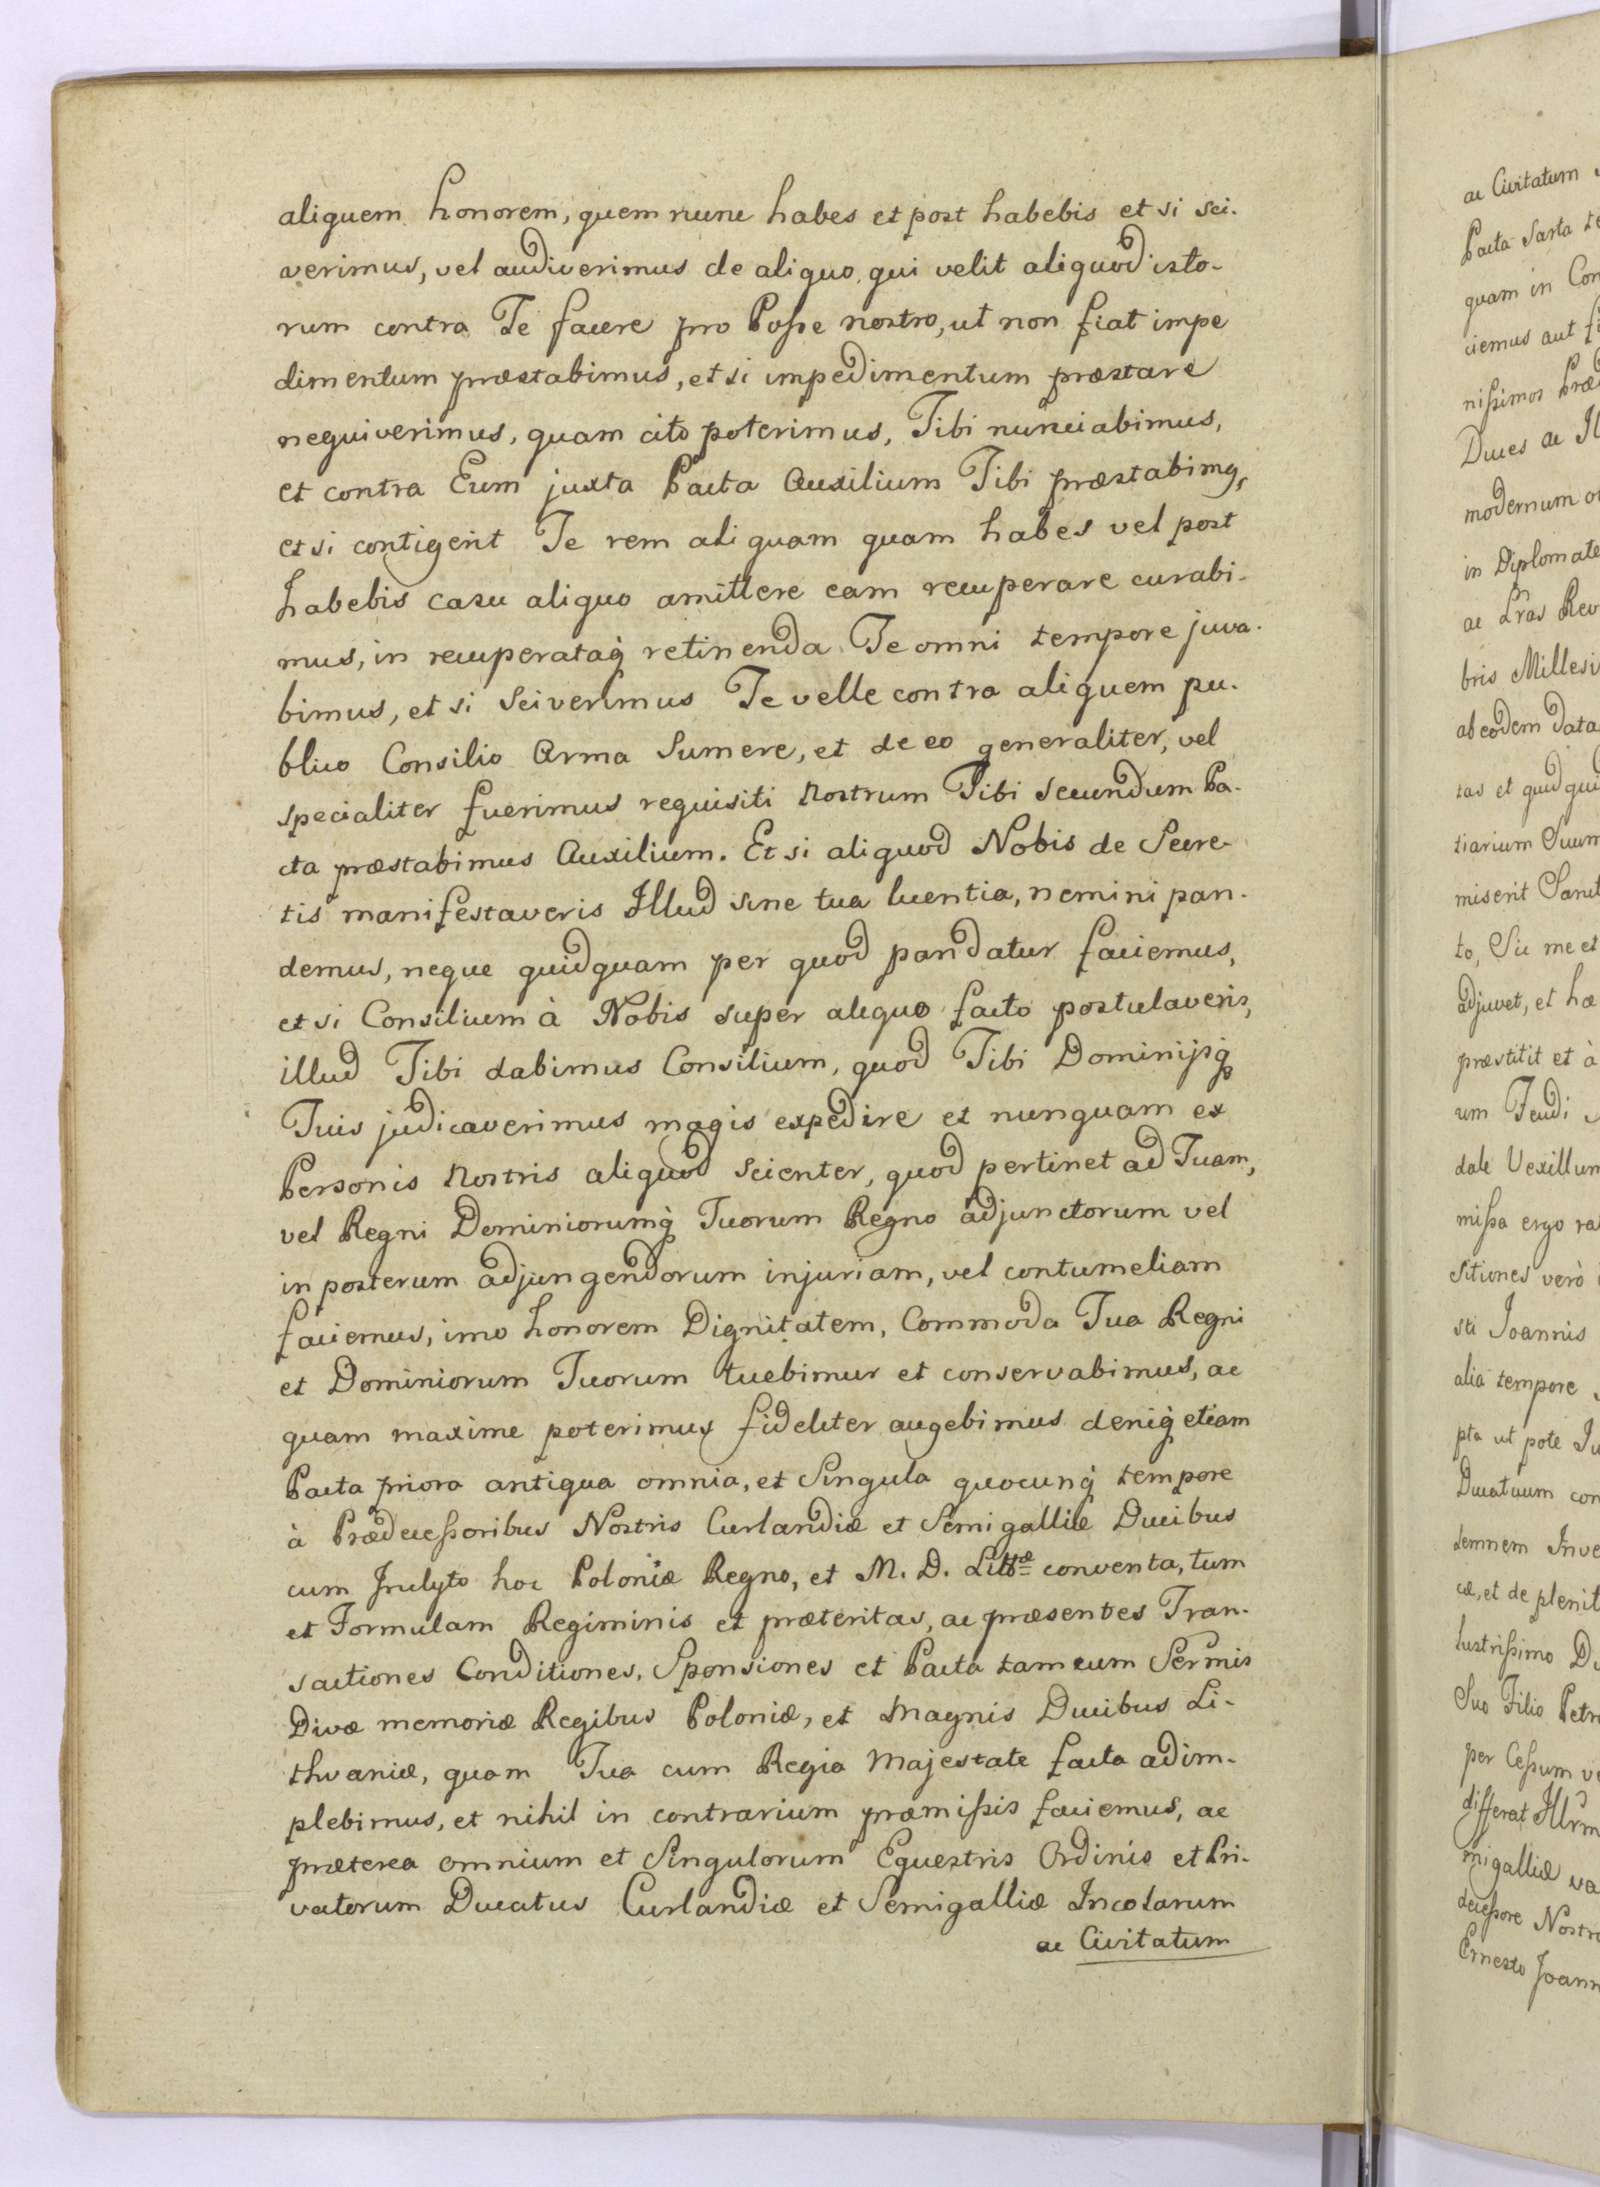 aliquem honorem, quem nunc habes et post habebis et si sci-
verimus, vel audiverimus de aliquo, qui velit aliquod isto-
rum contra Te facere pro Posse nostro, ut non fiat impe
dimentum præstabimus, et si impedimentum præstare
nequiverimus, quam cito poterimus, Tibi nunciabimus,
et contra Eum juxta Pacta Auxilium Tibi præstabimq,
et si contigerit Te rem aliquam quam habes vel post
habebis casu aliquo amittere eam recuperare curabi-
mus, in recuperataq̀ retinenda Te omni tempore juva-
bimus, et si Sciverimus Te velle contra aliquem pu-
blico Consilio Arma Sumere, et de eo generaliter, vel
specialiter fuerimus requisiti Nostrum Tibi secundum Pa-
cta præstabimus Auxilium. Et si aliquod Nobis de Secre-
tis manifestaveris Illud sine tua licentia, nemini pan-
demus, neque quidquam per quod pandatur faciemus,
et si Consilium à Nobis super aliquo facto postulaveris,
illud Tibi dabimus Consilium, quod Tibi Dominijsq̀
Tuis judicaverimus magis expedire et nunquam ex
Personis Nostris aliquod Scienter, quod pertinet ad Tuam,
vel Regni Dominiorumq̀ Tuorum Regno adjunctorum vel
in posterum adjungendorum injuriam, vel contumeliam
faciemus, imo honorem Dignitatem, Commoda Tua Regni
et Dominiorum Tuorum tuebimur et conservabimus, ac
quam maxime poterimus fideliter augebimus deniq̀ etiam
Pacta priora antiqua omnia, et Singula quocunq̀ tempore
à Prædecessoribus Nostris Curlandiæ et Semigalliæ Ducibus
cum Inclyto hoc Poloniæ Regno, et M. D. Littæ conventa, tum
et Formulam Regiminis et præteritas, ac præsentes Tran-
sactiones Conditiones, Sponsiones et Pacta tam cum Sermis
Divæ memoriæ Regibus Poloniæ, et Magnis Ducibus Li-
thvaniæ, quam Tua cum Regia Majestate facta adim-
plebimus, et nihil in contrarium præmissis faciemus, ac
præterea omnium et Singulorum Equestris Ordinis et Pri-
vatorum Ducatus Curlandiæ et Semigalliæ Incolarum
ac Civitatum
ac Civitatum
Pacta Sarta
quam in
ciemus aut
nissimos
Duces ac
modernum
in Diplomate
ac Lr̃as
bris
ab eodem data
tas et
tiarium Suum
miserit
to, Sic me et
adjuvet, et
præstitit et à
um Feudi
dale
missa ergo
sitiones verò
sti Joannis
alia tempore
pta ut pote
Ducatuum
lemnem
cæ, et de
lustrissimo
Suo Filio
per Cessum
differat
migalliæ
decessore
Ernesto